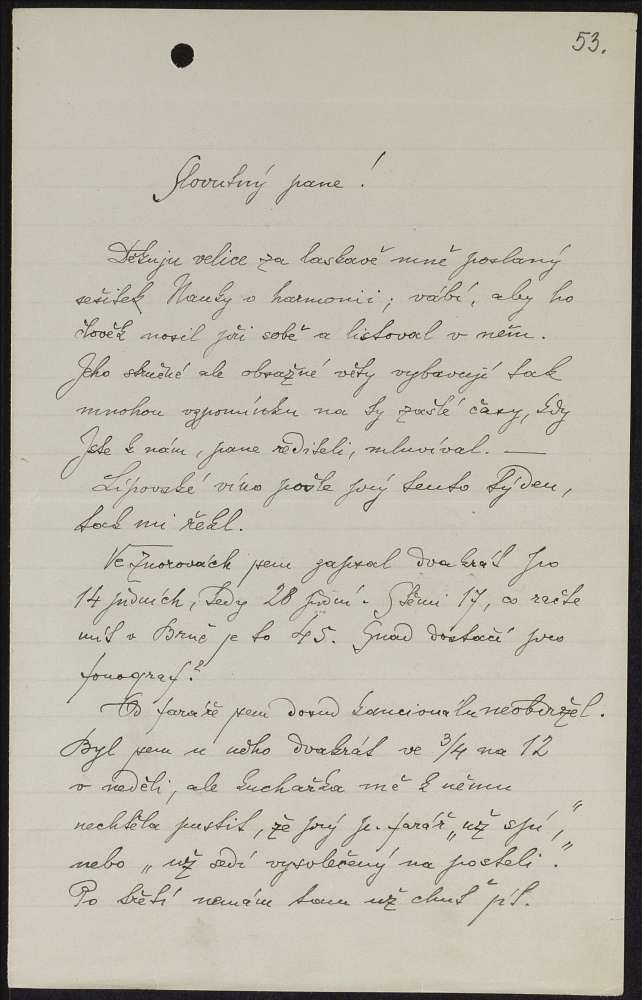 53.
Slovutný pane!
Děkuju velice za laskavě mně poslaný
sešitek Nauky o harmonii; vábí, aby ho
člověk nosil při sobě a listoval v něm.
Jeho stručné ale obsažné věty vybavují tak
mnohou vzpomínku na ty zašlé časy, kdy
Jste k nám, pane řediteli, mluvíval. —
Lipovské víno pošle prý tento týden,
tak mi řekl.
Ve Znorovách jsem zapsal dvakrát po
14 písních, tedy 28 písní. S těmi 17, co račte
mít v Brně je to 45. Snad dostačí pro
fonograf?
Od faráře jsem dosud kancionálu neobdržel.
Byl jsem u něho dvakrát ve 3/4 na 12
v neděli, ale kuchařka mě k němu
nechtěla pustit, že prý p. farář „už spí",
nebo „už sedí vysvlečený na posteli".
Po třetí nemám tam už chuť jít.